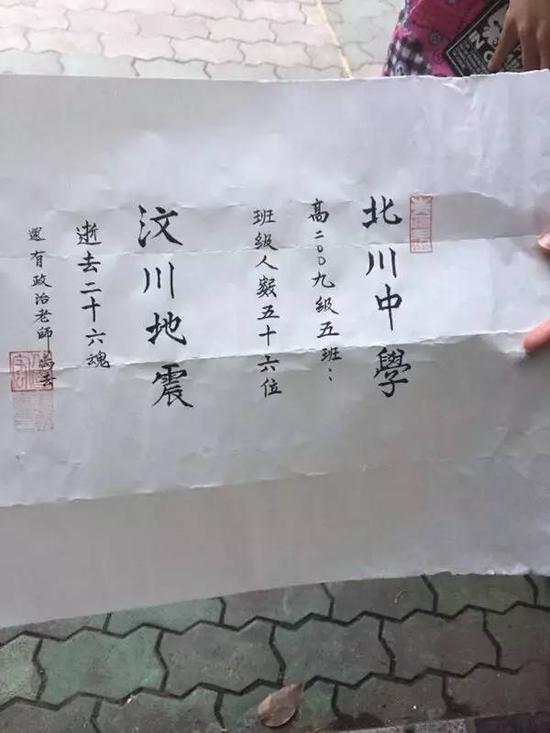 北川中學
高二〇〇九級五班：
班级人数五十六位
汶川地震
逝去二十六魂
還有政治老師